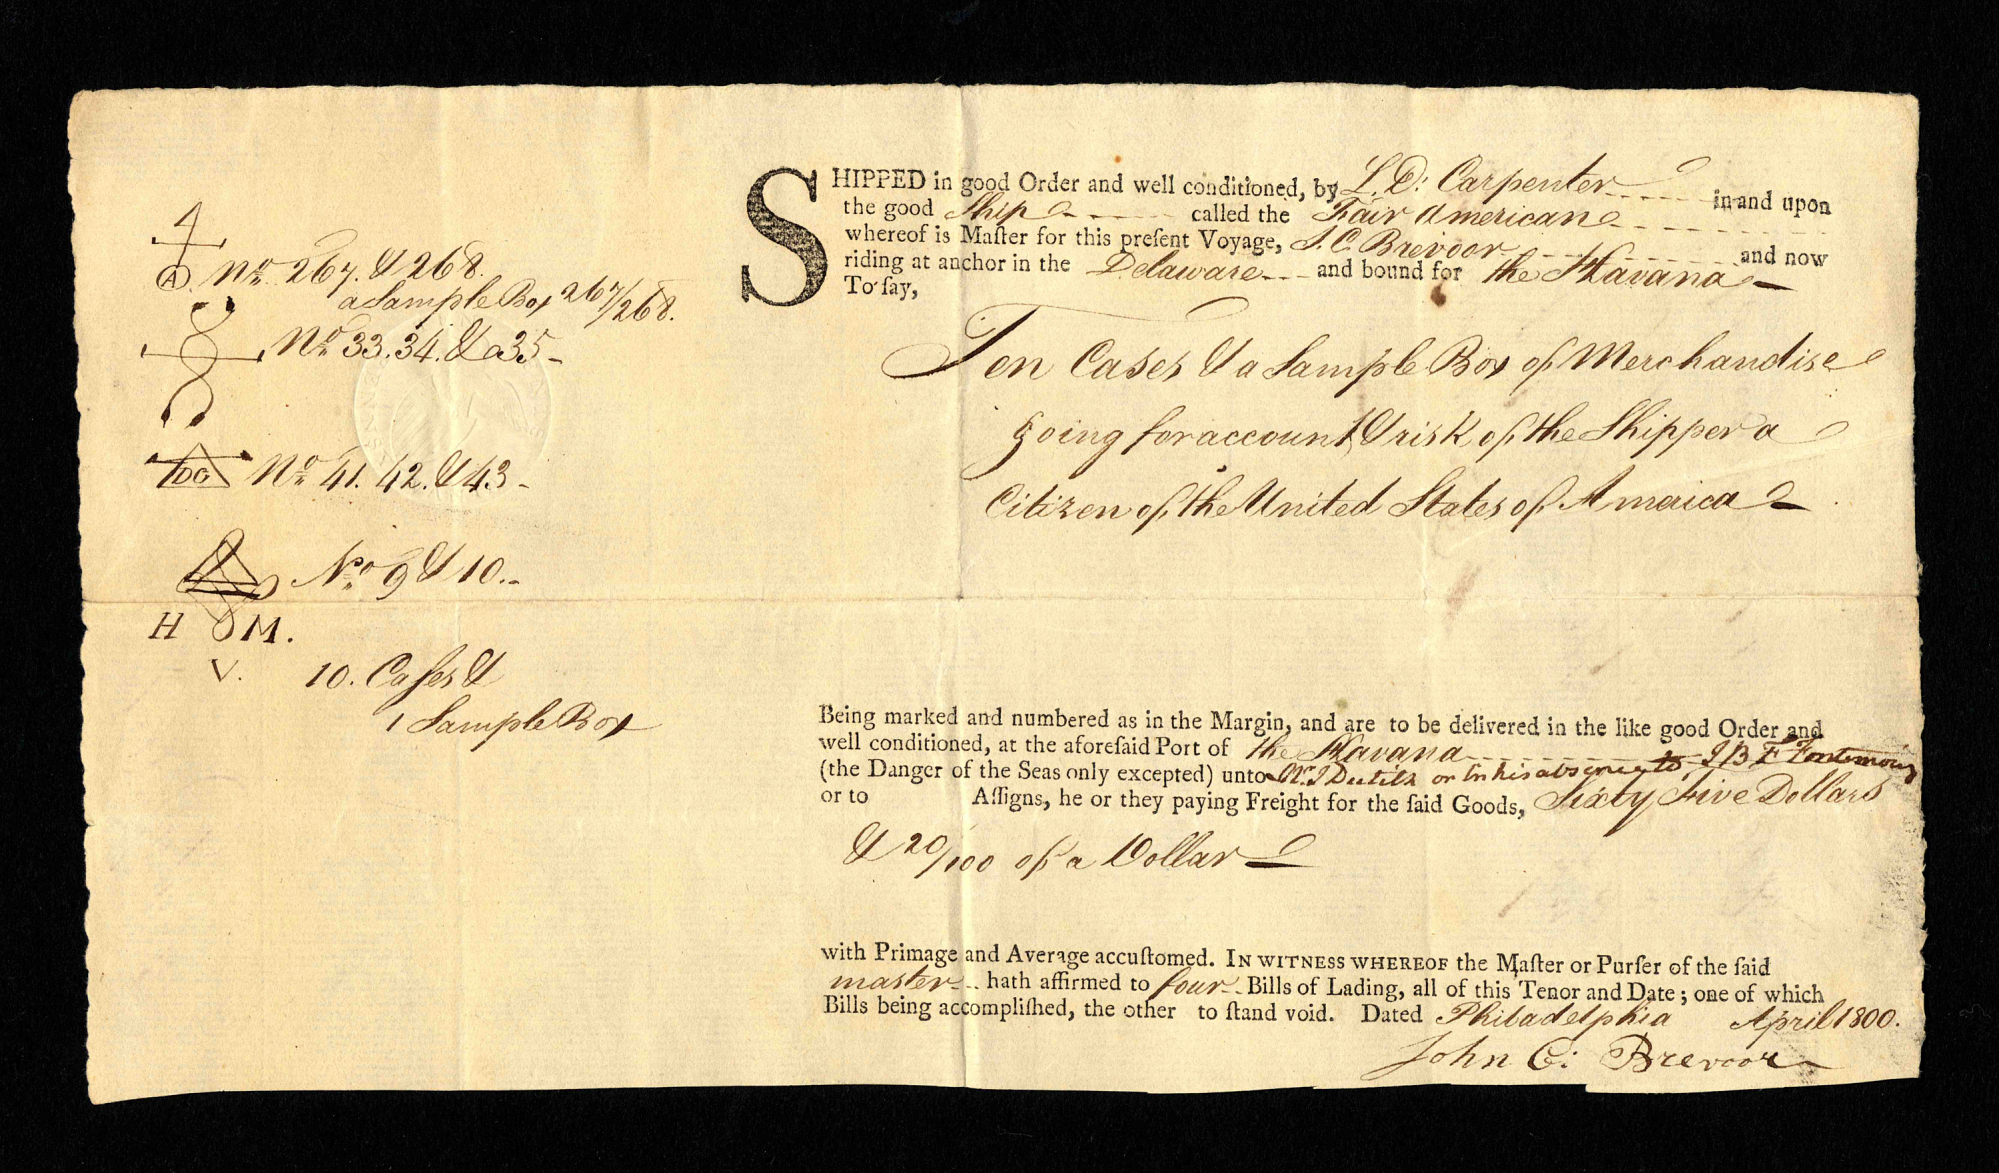 A No. 267. & 268.
a Sample Box 267/268.
No. 33. 34. & a 35
DG No. 41. 42. & 43
No. 9 & 10.
H M.
V.
10. Caſes &
1 Sample Box
SHIPPED in good Order and well conditioned, by L. D: Carpenter in and upon
the good Ship called the Fair American
whereof is Maſter for this preſent Voyage, J. C. Brevoor and now
riding at anchor in the Delaware and bound for the Havana
To ſay,
Ten Cases & a Sample Box of Merchandise
going for account & risk of the Shipper a
Citizen of the United States of America
Being marked and numbered as in the Margin, and are to be delivered in the like good Order and
well conditioned, at the aforeſaid Port of the Havana
(the Danger of the Seas only excepted) unto or in his absence to J B F
or to Aſſigns, he or they paying Freight for the ſaid Goods, Sixty Five Dollars
& 20/100 of a Dollar
with Primage and Average accuſtomed. IN WITNESS WHEREOF the Maſter or Purſer of the ſaid
master hath affirmed to four Bills of Lading, all of this Tenor and Date; one of which
Bills being accompliſhed, the other to ſtand void. Dated Philadelphia April 1800.
John C: Brevoor